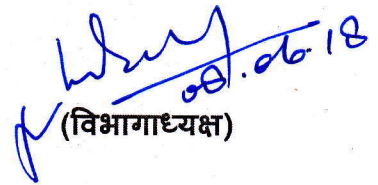 08.06.18
(विभागाध्यक्ष)